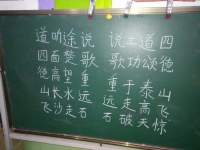 道听途说 说三道四
四面楚歌 歌功颂德
德高望重 重于泰山
山长水远 远走高飞
飞沙走石 石破天惊